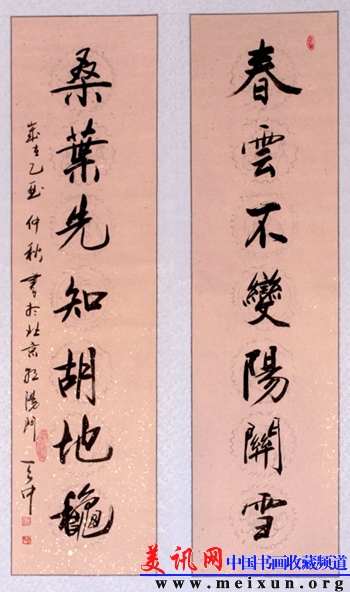 春雲不變陽關雪
桑葉先知胡地穐
歲在乙酉仲秋書於北京朝陽門
美讯网 中国书画收藏频道
www.meixun.org